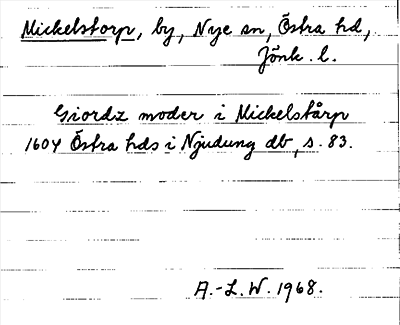 Mickelstorp, by, Nye sn, Östra hd,
Jönk. l.
Giordz moder i Mickelstårp
1604 Östra hds i Njudung db, s. 83.
A.-L. W. 1968.